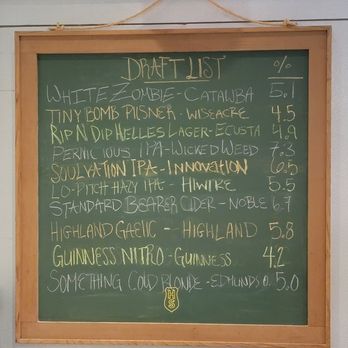 DRAFT LIST %
WHITE ZOMBIE - CATAWBA 5.1
TINY BOMB PILSNER - WISEACRE 4.5
RIP N DIP HELLES LAGER - ECUSTA 4.9
PERNICIOUS IPA - WICKED WEED 7.3
SOULVATION IPA - INNOVATION 6.5
LO-PITCH HAZY IPA - HIWIRE 5.5
STANDARD BEARER CIDER - NOBLE 6.7
HIGHLAND GAELIC - HIGHLAND 5.8
GUINNESS NITRO - GUINNESS 4.2
SOMETHING COLD BLONDE - EDMUNDS O. 5.0